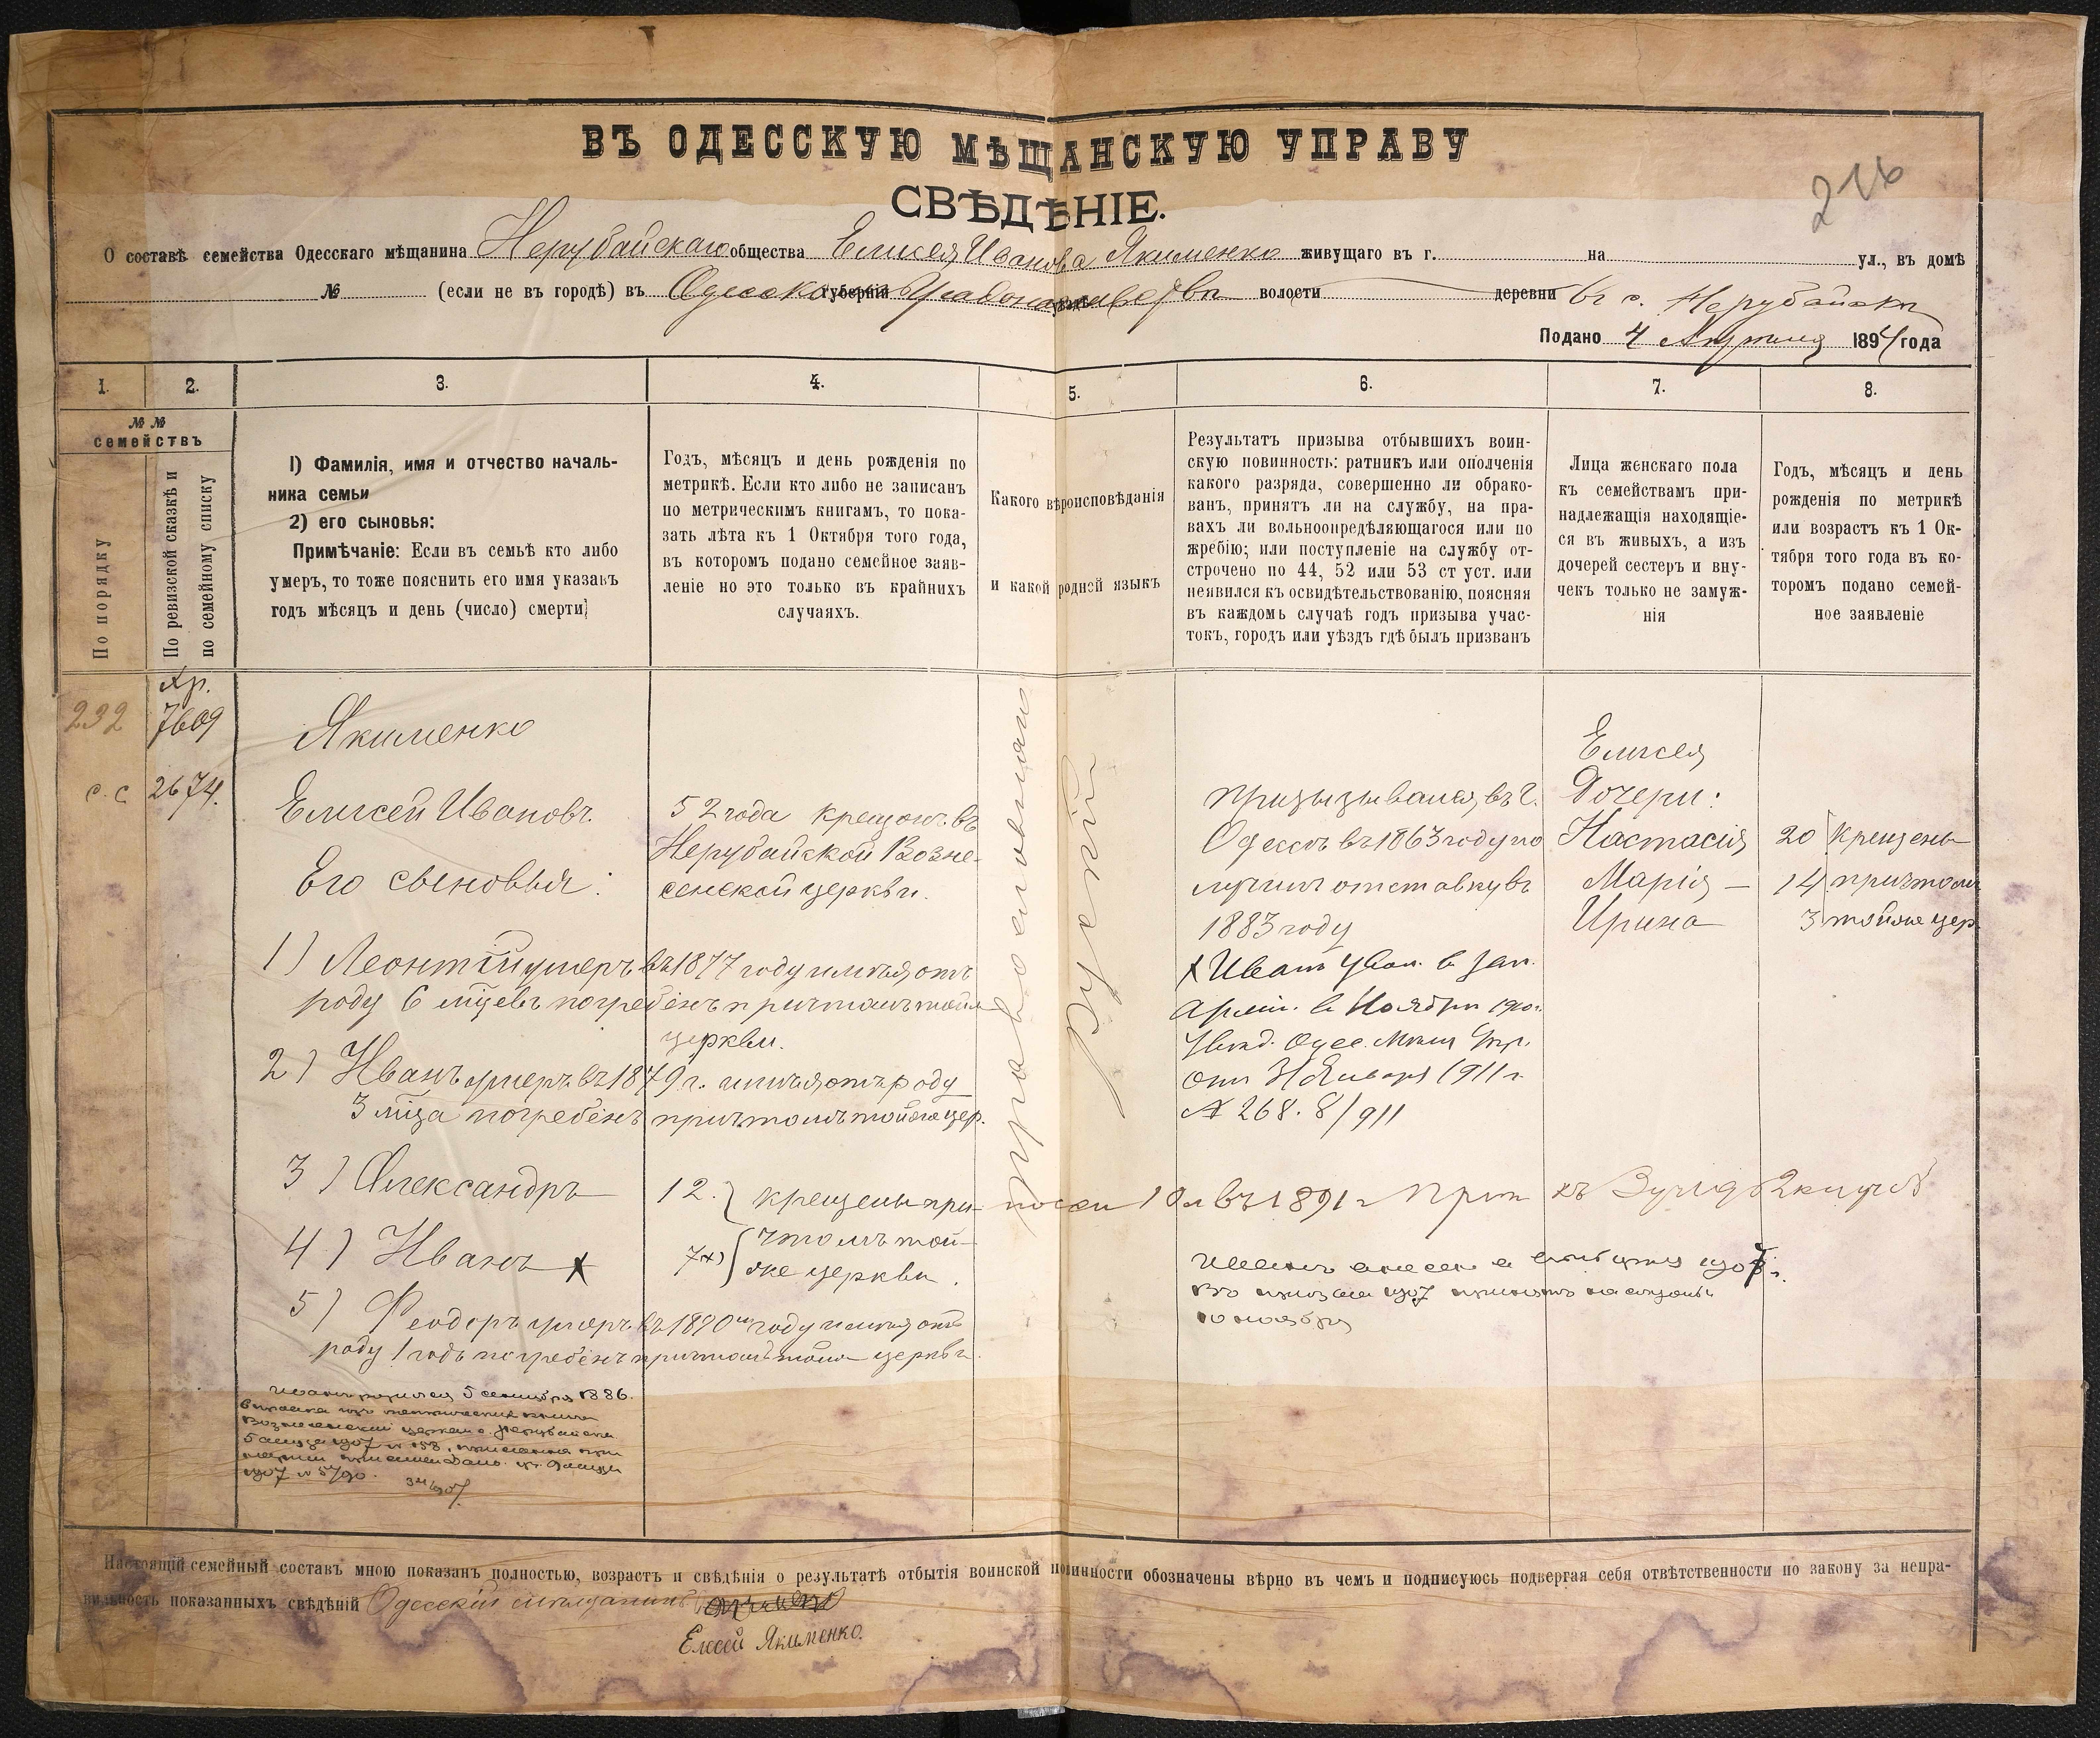 ВЪ ОДЕССКУЮ МѢЩАНСКУЮ УПРАВУ
СВѢДѢНІЕ.
О составѣ семейства Одесскаго мѣщанина Нерубайскаго общества Елисея Иванова Якименко живущаго въ г. на ул., въ домѣ
№ (если не въ городѣ) въ губерніи волости деревни въ с. Нерубайскъ
Подано 4 Апрѣля 1894 года
1.
2.
3.
4.
5.
6.
7.
8.
№ №
семействъ
По порядку
По ревизской сказкѣ и
по семейному списку
1) Фамилія, имя и отчество началь-
ника семьи
2) его сыновья:
Примѣчаніе: Если въ семьѣ кто либо
умеръ, то тоже пояснить его имя указавъ
годъ мѣсяцъ и день (число) смерти;
Годъ, мѣсяцъ и день рожденія по
метрикѣ. Если кто либо не записанъ
по метрическимъ книгамъ, то пока-
зать лѣта къ 1 Октября того года,
въ которомъ подано семейное заяв-
леніе но это только въ крайнихъ
случаяхъ.
Какого вѣроисповѣданія
и какой родной языкъ
Результатъ призыва отбывшихъ воин-
скую повинность: ратникъ или ополченія
какого разряда, совершенно ли обрако-
ванъ, принятъ ли на службу, на пра-
вахъ ли вольноопредѣляющагося или по
жребію; или поступленіе на службу от-
строчено по 44, 52 или 53 ст уст. или
неявился къ освидѣтельствованію, поясняя
въ каждомъ случаѣ годъ призыва учас-
токъ, городъ или уѣздъ гдѣ былъ призванъ
Лица женскаго пола
къ семействамъ при-
надлежащія находящіе-
ся въ живыхъ, а изъ
дочерей сестеръ и вну-
чекъ только не замуж-
нія
Годъ, мѣсяцъ и день
рожденія по метрикѣ
или возрастъ къ 1 Ок-
тября того года въ ко-
торомъ подано семей-
ное заявленіе
232
Хр.
7609
с.с
2674.
Якименко
Елисей Ивановъ.
Его сыновья:
1) Леонтій умеръ въ 1877 году имѣя отъ
роду 6 мцевъ погребенъ причтомъ тойже
церкви.
2) Иванъ умеръ въ 1879 г. имѣя отъ роду
3 мца погребенъ причтомъ тойже цер.
3) Александръ
4) Иванъ х
5) Феодоръ умеръ въ 1890мъ году имѣя отъ
роду 1 годъ погребенъ причтомъ тойже церкви.
Иванъ родился 5 сентября 1886.
52 года крещенъ въ
Нерубайской Возне-
сенской церкви.
12. крещены при-
7 х) чтомъ той-
же церкви.
православнаго
русскій
призывался въ г.
Одессѣ въ 1863 году по
лучилъ отставку въ
1883 году
х Иванъ увол. в зап.
арміи. в Ноябрѣ 1910г.
Увѣд. Одес. Мѣщ Упр.
отъ 31 Января 1911 г.
№ 268. 8/911
въ 1891 г
ноября
Елисея
Дочери:
Настасія
Марія —
Ирина
20 крещены
14 причтомъ
3 тойже цер.
Настоящій семейный составъ мною показанъ полностью, возрастъ и свѣдѣнія о результатѣ отбытія воинской повинности обозначены вѣрно въ чемъ и подписуюсь подвергая себя отвѣтственности по закону за непра-
вильность показанныхъ свѣдѣній Одесскій мѣщанинъ
Елесей Якименко.